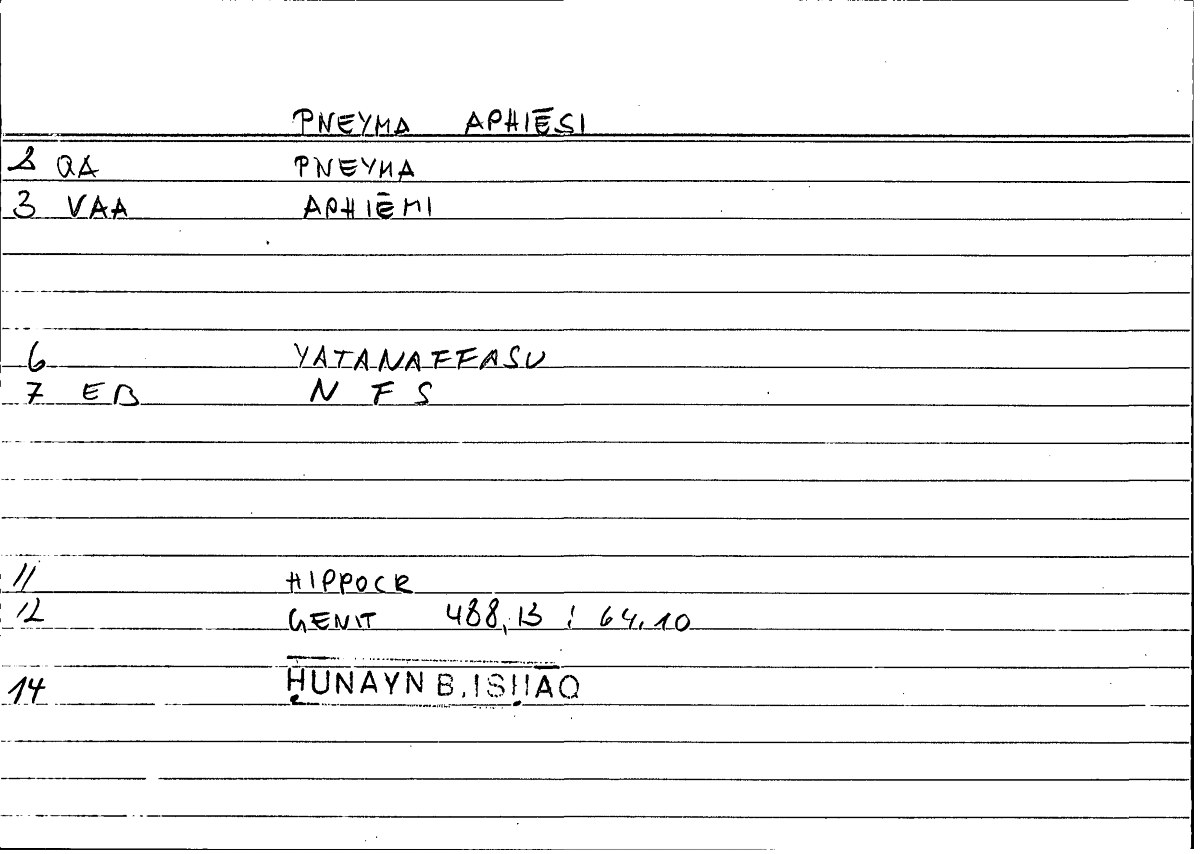 PNEYMA APHIĒSI
2 QA PNEYMA
3 VAA APHIĒMI
6 YATANAFFASU
7 EB N F S
11 HIPPOCR
12 GENIT 488,13 : 64,10
14 ḤUNAYN B. ISḤĀQ